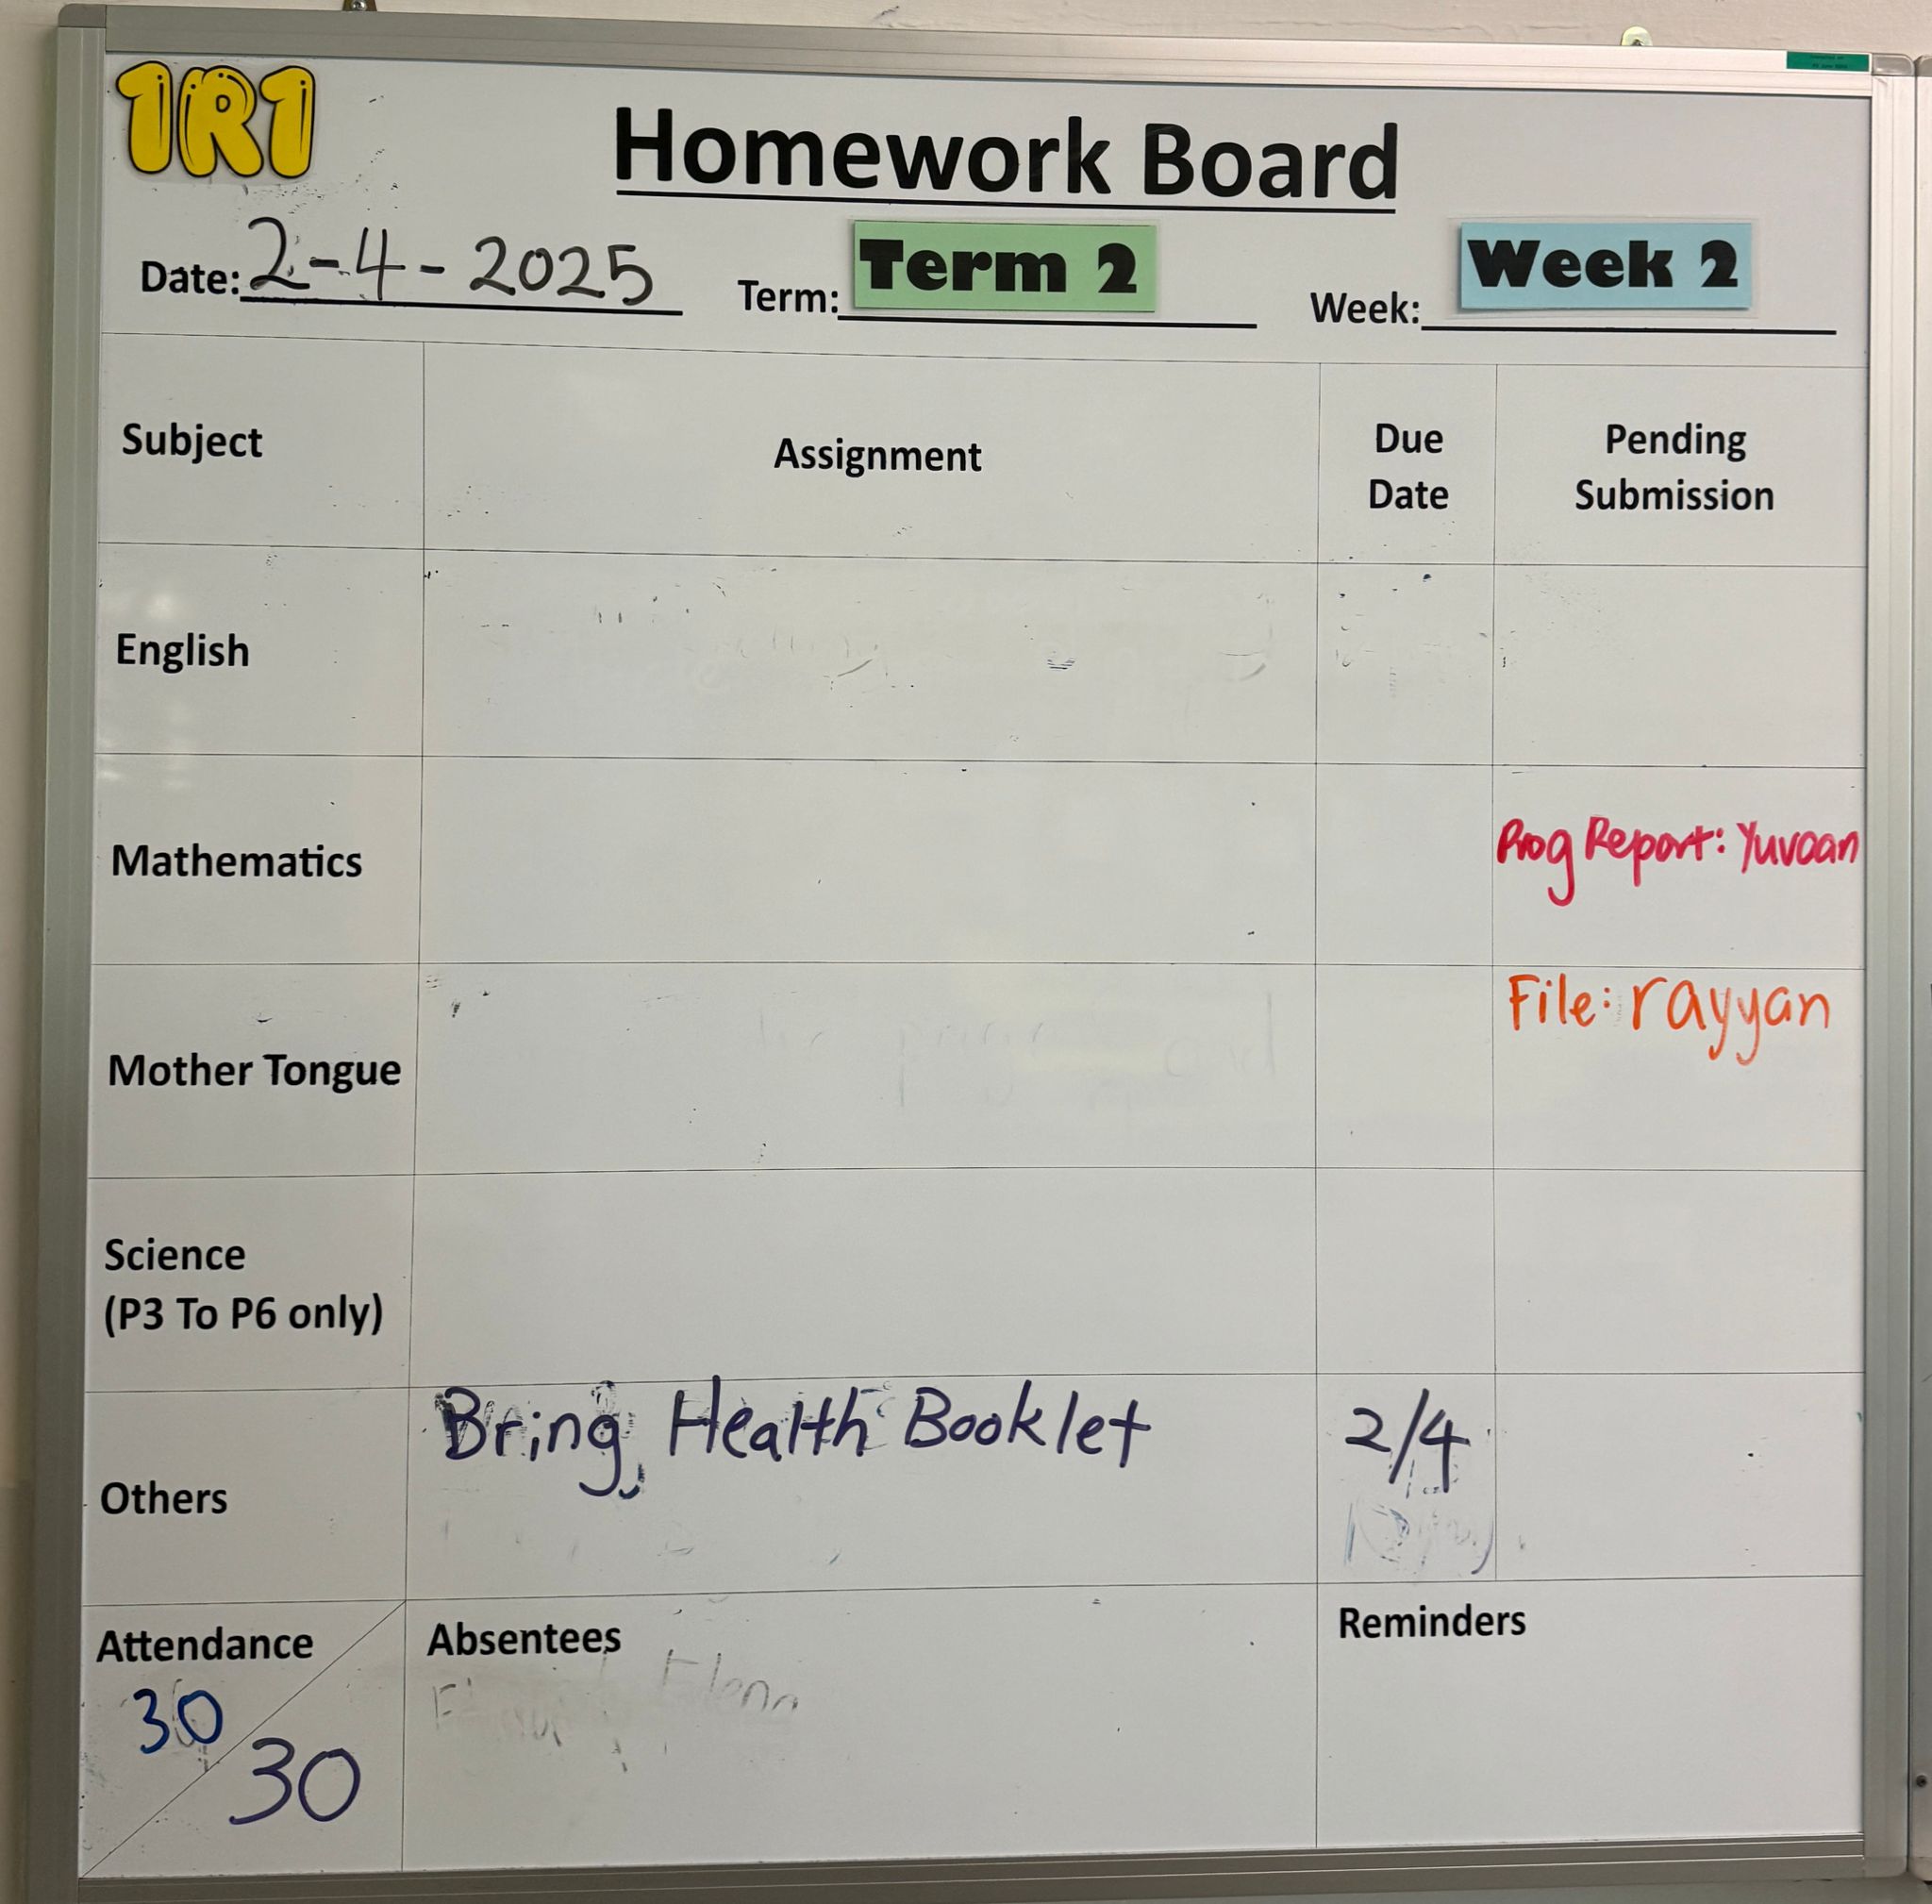 1R1
Homework Board
Date: 2-4-2025 Term: Term 2 Week: Week 2
Subject Assignment Due Date Pending Submission
English
Mathematics Prog Report: Yuvaan
File: rayyan
Mother Tongue
Science
(P3 To P6 only)
Bring Health Booklet 2/4
Others
Attendance Absentees Reminders
30
30